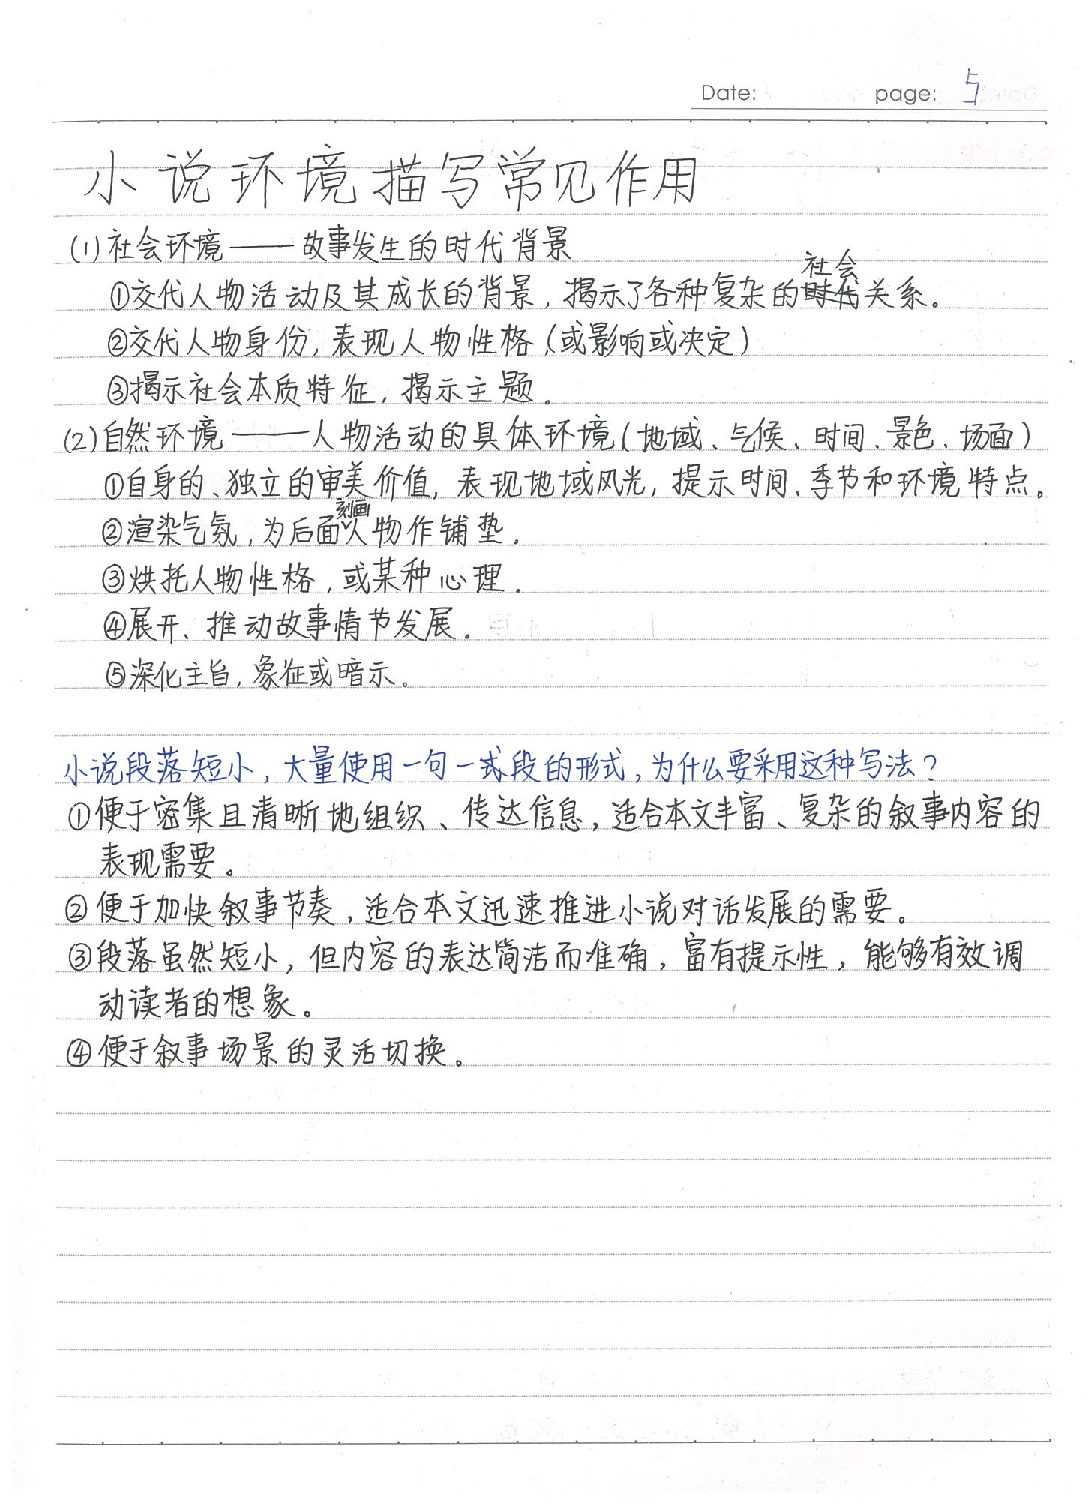 Date: page: 5
小说环境描写常见作用
(1)社会环境——故事发生的时代背景
①交代人物活动及其成长的背景，揭示了各种复杂的社会关系。
②交代人物身份，表现人物性格（或影响或决定）
③揭示社会本质特征，揭示主题。
(2)自然环境——人物活动的具体环境（地域、气候、时间、景色、场面）
①自身的、独立的审美价值，表现地域风光，提示时间、季节和环境特点。
②渲染气氛，为后面刻画人物作铺垫．
③烘托人物性格，或某种心理．
④展开、推动故事情节发展．
⑤深化主旨，象征或暗示。
小说段落短小，大量使用一句一式段的形式，为什么要采用这种写法？
①便于密集且清晰地组织、传达信息，适合本文丰富、复杂的叙事内容的
表现需要。
②便于加快叙事节奏，适合本文迅速推进小说对话发展的需要。
③段落虽然短小，但内容的表达简洁而准确，富有提示性，能够有效调
动读者的想象。
④便于叙事场景的灵活切换。